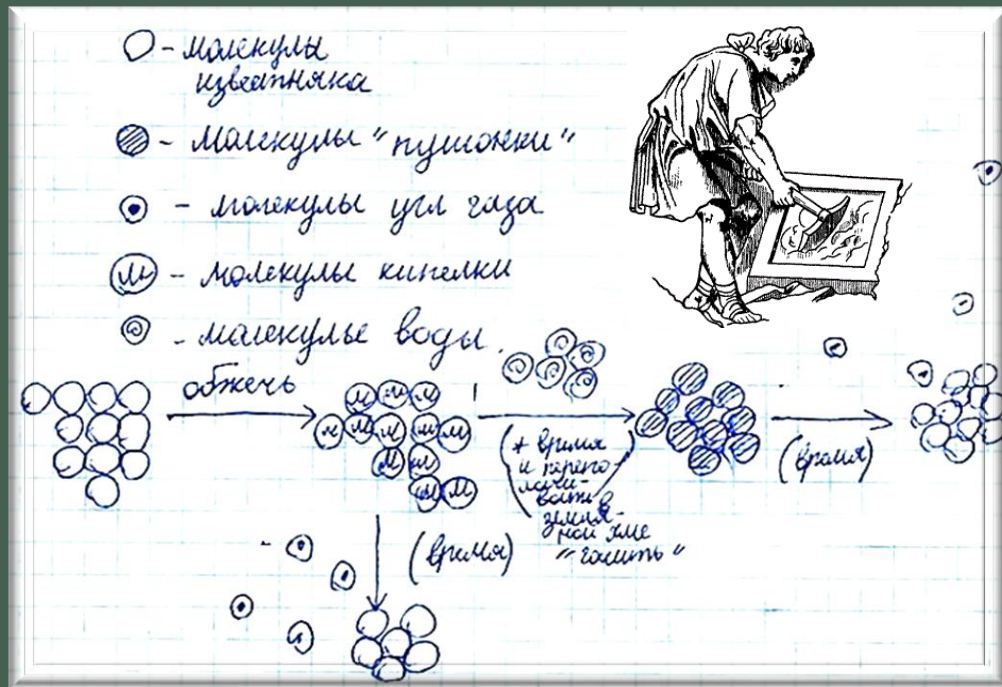 - молекулы
известняка
- молекулы "пушонки"
- молекулы угл газа
м - молекулы кипелки
- молекулы воды
обжечь
м м м
м м м м м
м м
м м
(+ время
и перело-
пачи-
вать в
земля-
ной яме
"гасить"
(время)
(время)